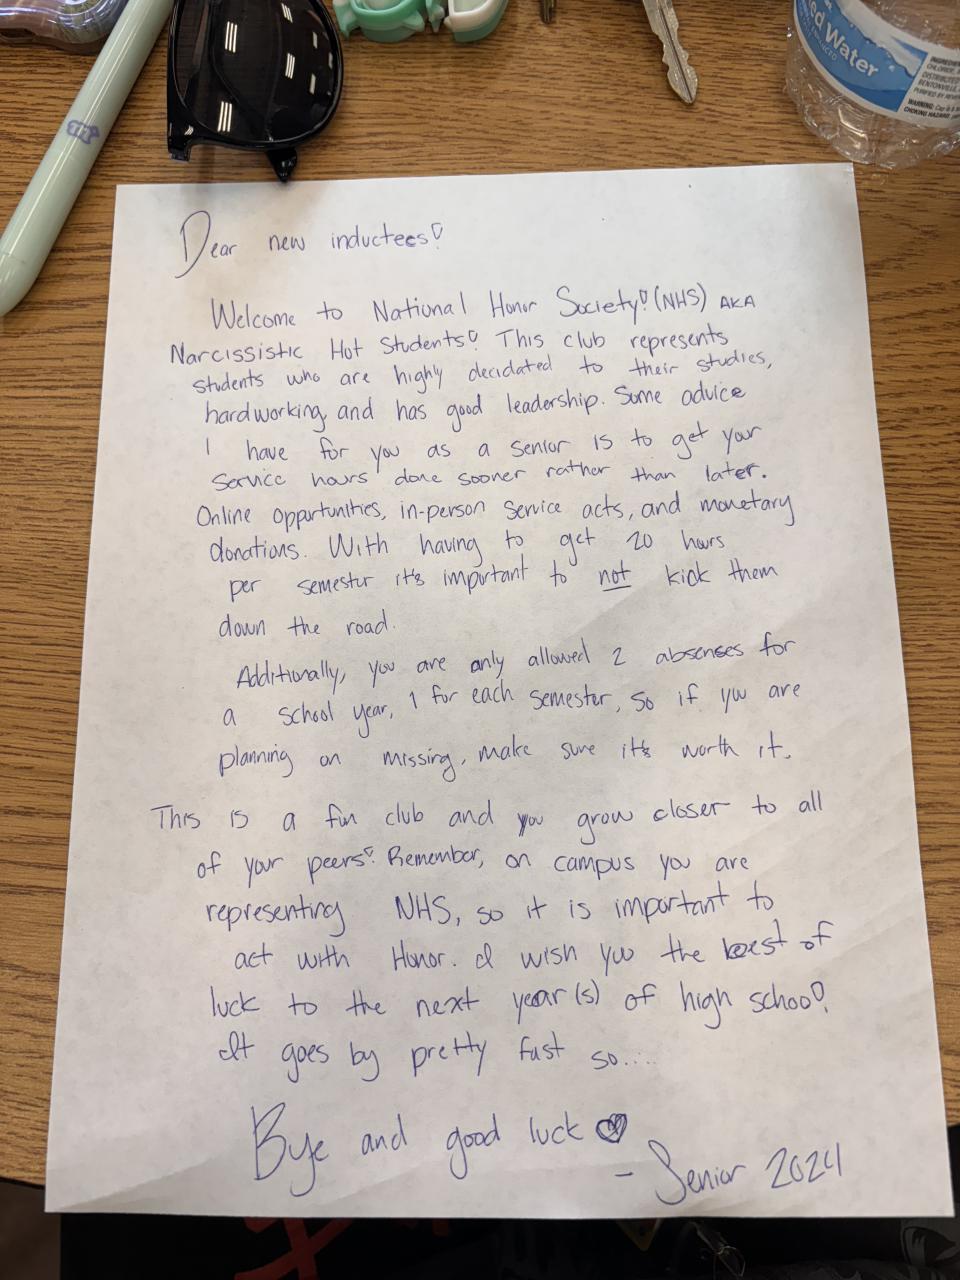 ed Water
ENHANCED
WARNING: Cap is a
CHOKING HAZARD
Dear new inductees!
Welcome to National Honor Society! (NHS) AKA
Narcissistic Hot Students! This club represents
students who are highly decidated to their studies,
hardworking, and has good leadership. Some advice
I have for you as a senior is to get your
service hours done sooner rather than later.
Online opportunities, in-person service acts, and monetary
donations. With having to get 20 hours
per semester it's important to not kick them
down the road.
Additionally, you are only allowed 2 absenses for
a school year, 1 for each semester, so if you are
planning on missing, make sure it's worth it.
This is a fun club and you grow closer to all
of your peers! Remember, on campus you are
representing NHS, so it is important to
act with Honor. I wish you the best of
luck to the next year(s) of high school!
It goes by pretty fast so....
Bye and good luck ♡
- Senior 2024